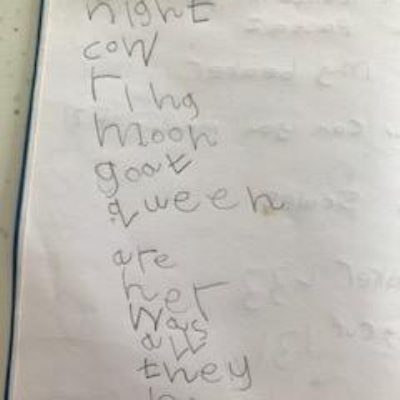 night
cow
ring
moon
goat
queen
are
her
was
all
they